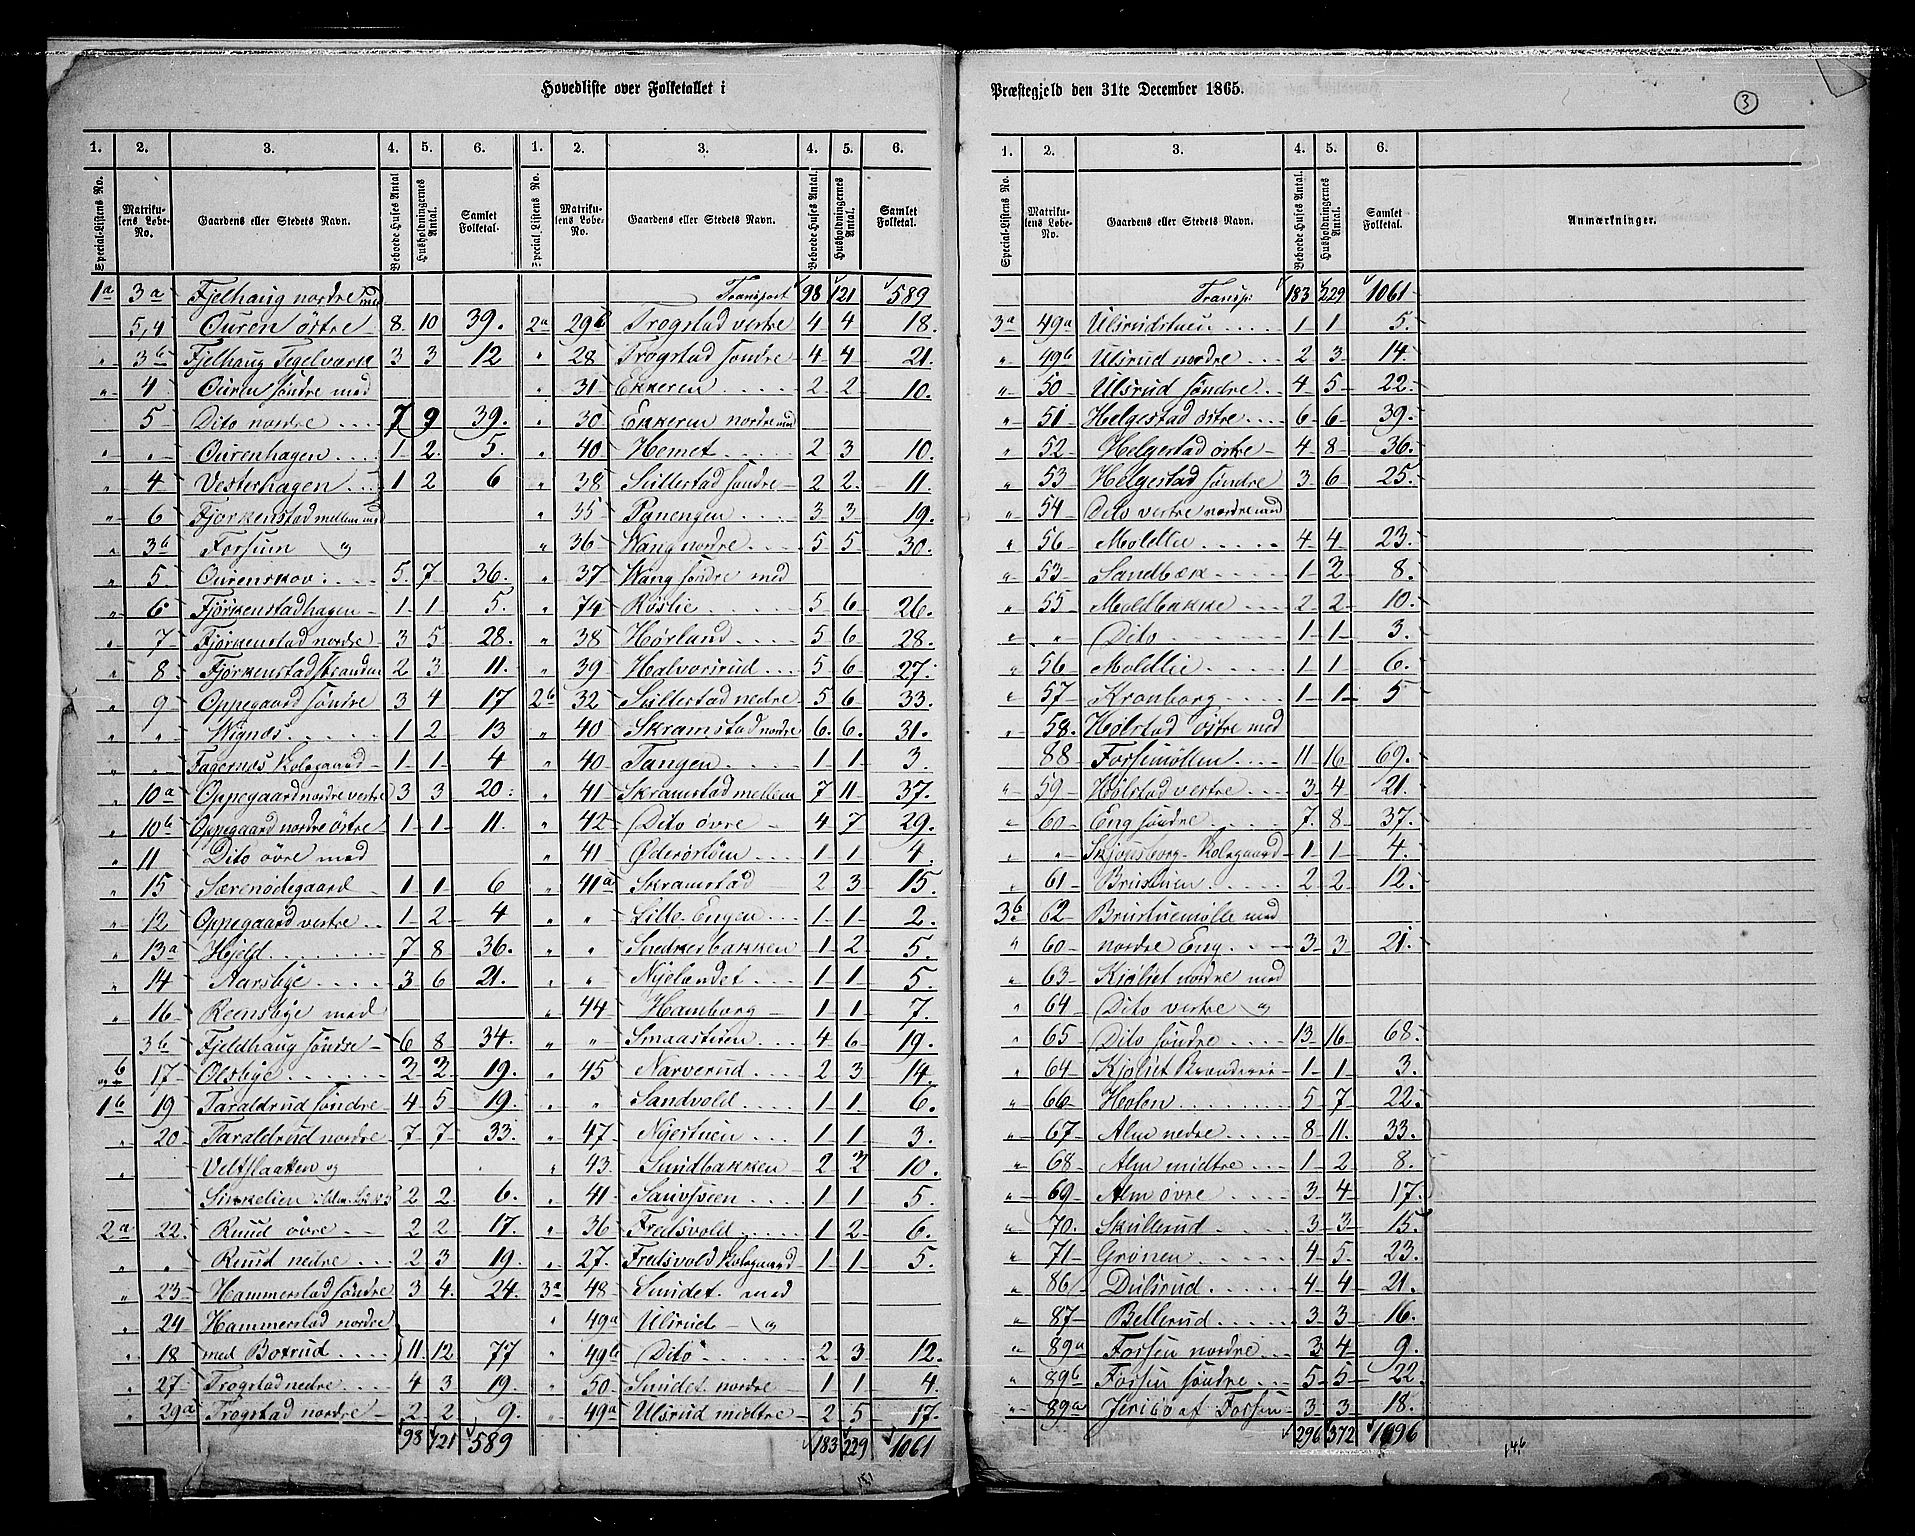 Hovedliste over Folketallet i Præstegjeld den 31te December 1865.
3
1. 2. 3. 4. 5. 6. 1. 2. 3. 4. 5. 6.
Special-Listens No. Matrikulens Løbe-No. Gaardens eller Stedets Navn. Beboede Huses Antal Husholdningernes Antal. Samlet Folketal. Special-Listens No. Matrikulens Løbe-No. Gaardens eller Stedets Navn. Beboede Huses Antal. Husholdningernes Antal. Samlet Folketal.
1a 3a Fjelhaug nordre med
5,4 Ouren östre 8 10 39.
" 3b Fjelhaug Tegelværk 3 3 12
" 4 Ouren söndre med
5 Dito nordre 7 9 39.
" " Ourenhagen 1 2. 5.
" 4 Vesterhagen 1 2 6
" 6 Fjörkenstad mellem med
" 3b Forsum og
" 5 Ourenskov 5. 7 36.
" 6 Fjörkenstadhagen 1 1 5.
" 7 Fjörkenstad nordre 3 5 28.
" 8. Fjörkenstad 2 3 11.
" 9 Oppegaard söndre 3 4 17
" " Wignæs 1 2 13
" " Fagernæs Kolsgaard 1 1 4
" 10a Oppegaard nordre vestre 3 3 20
" 10b Oppegaard nordre östre 1 1 11.
" 11 Dito övre med
" 15 Særenödegaard 1 1 6
" 12 Oppegaard vestre 1 2 4
" 13a Hjeld 7 8 36.
" 14 Aarsbye 3 6 21.
" 16 Reensbye med
3b Fjeldhaug söndre 6 8 34.
17 Olsbye 2 2 19.
1b 19 Taraldrud söndre 4 5 19.
" 20 Taraldrud nordre 7 7 33.
" Veltslaatten og
Sinkelien 2 2 6.
2a 22. Ruud övre 2 2 17.
" " Ruud nedre 2 3 19.
" 23 Hammerstad söndre 3 4. 24.
" 24 Hammerstad nordre
" 18 med Botrud 11. 12 77
" 27 Trogstad nedre 4 3 19.
" 29a Trogstad nordre 2 2 9.
98 121 589
Transport 98 121 589
2a 29b Trogstad vestre 4 4 18.
" 28 Trogstad söndre 4 4 21.
" 31 Ekkeren 2 2 10.
" 30 Ekkeren nordre med
" 40 Hemet 2 3 10.
" 38 Sillestad söndre 2 2. 11.
" 35 Panengen 3 3 19.
" 36 Wang nordre 5 5 30.
" 37 Wang söndre med
" 74 Röslie 5 6 26.
" 38 Hörland 5 6 28.
" 39 Halvorsrud 5 6 27.
2b 32 Sillestad nedre 5 6 33.
" 40 Skramstad nordre 6. 6. 31.
" 40 Tangen 1 1 3.
" 41 Skramstad mellem 7 11 37.
" 42 Dito övre 4 7 29.
" 41 Öderöstöen 1 1 4.
" 41a Skramstad 2 3 15.
" " Lille-Engen 1 1 2.
" " Snekkerbakken 1 2 5.
" " Nyelandet 1 1 5.
" 44 Hamborg 1 1 7.
" " Smaastuen 4 6 19.
" 45 Narverud 2 3 14.
" Sandvold 1 1 6.
" 47 Nyestuen 1 1 3.
" 43 Sundbakken 2 2 10.
" 41 Sauvsveen 1 1 5.
" 36 Fredsvold 1 2 6.
" 27. Fredsvold Kolsgaard 1 1 5.
3a 48 Sundet med
" 49a Ulsrud og
" 49b Dito 2 3 12.
" 50 Sundet nordre 1 1 4.
" 49a Ulsrud midtre 2 5 17.
183 229 1061
181
1. 2. 3. 4. 5. 6.
Special-Listens No. Matrikulens Løbe-No. Gaardens eller Stedets Navn. Beboede Huses Antal. Husholdningernes Antal. Samlet Folketal. Anmærkninger.
Transp: 183 229 1061
3a 49a Ulsrudstuen 1 1 5.
" 49b Ulsrud nordre 2 3 14.
" 50 Ulsrud söndre 4 5 22.
" 51 Helgestad östre 6 6 39.
" 52 Helgestad östre 4 8 36.
" 53 Helgestad söndre 3 6 25.
" 54 Dito vestre nordre med
" 56 Moldlie 4 4 23.
" 53 Sandbæk 1 2 8.
" 55 Moldbakke 2 2 10.
" " Dito 1 1 3.
" 56 Moldlie 1 1 6.
" 57 Kronborg 1 1 5
" 58. Hölstad östre med
88 Forsemöllen 11 16 69.
" 59 Hölstad vestre 3 4 21.
" 60 Eng söndre 7. 8 37.
" " Skjousborg Kolsgaard 1 1 4.
" 61 Brustuen 2 2 12.
3b 62 Brustuemölle med
" 60 nordre Eng 3 3 21.
" 63 Kjölset nordre med
" 64 Dito vestre og
" 65 Dito söndre 13 16 68.
" 64 Kjölset Brænderie 1 1 3.
" 66 Holen 5 7 22.
" 67 Alm nedre 8 11. 33.
" 68 Alm midtre 1 2 8.
" 69 Alm övre 3 4 17.
" 70. Skullerud 3 3 15.
" 71 Grönen 4 5 23.
" 86 Dulsrud 4 4 21.
" 87 Bellerud 3 3 16.
" 89a Forsen nordre 3 4 9.
" 89b Forsen söndre 5 5 22
" 89a Jeriko af Forsen 3 3 18.
296 372 1096
146